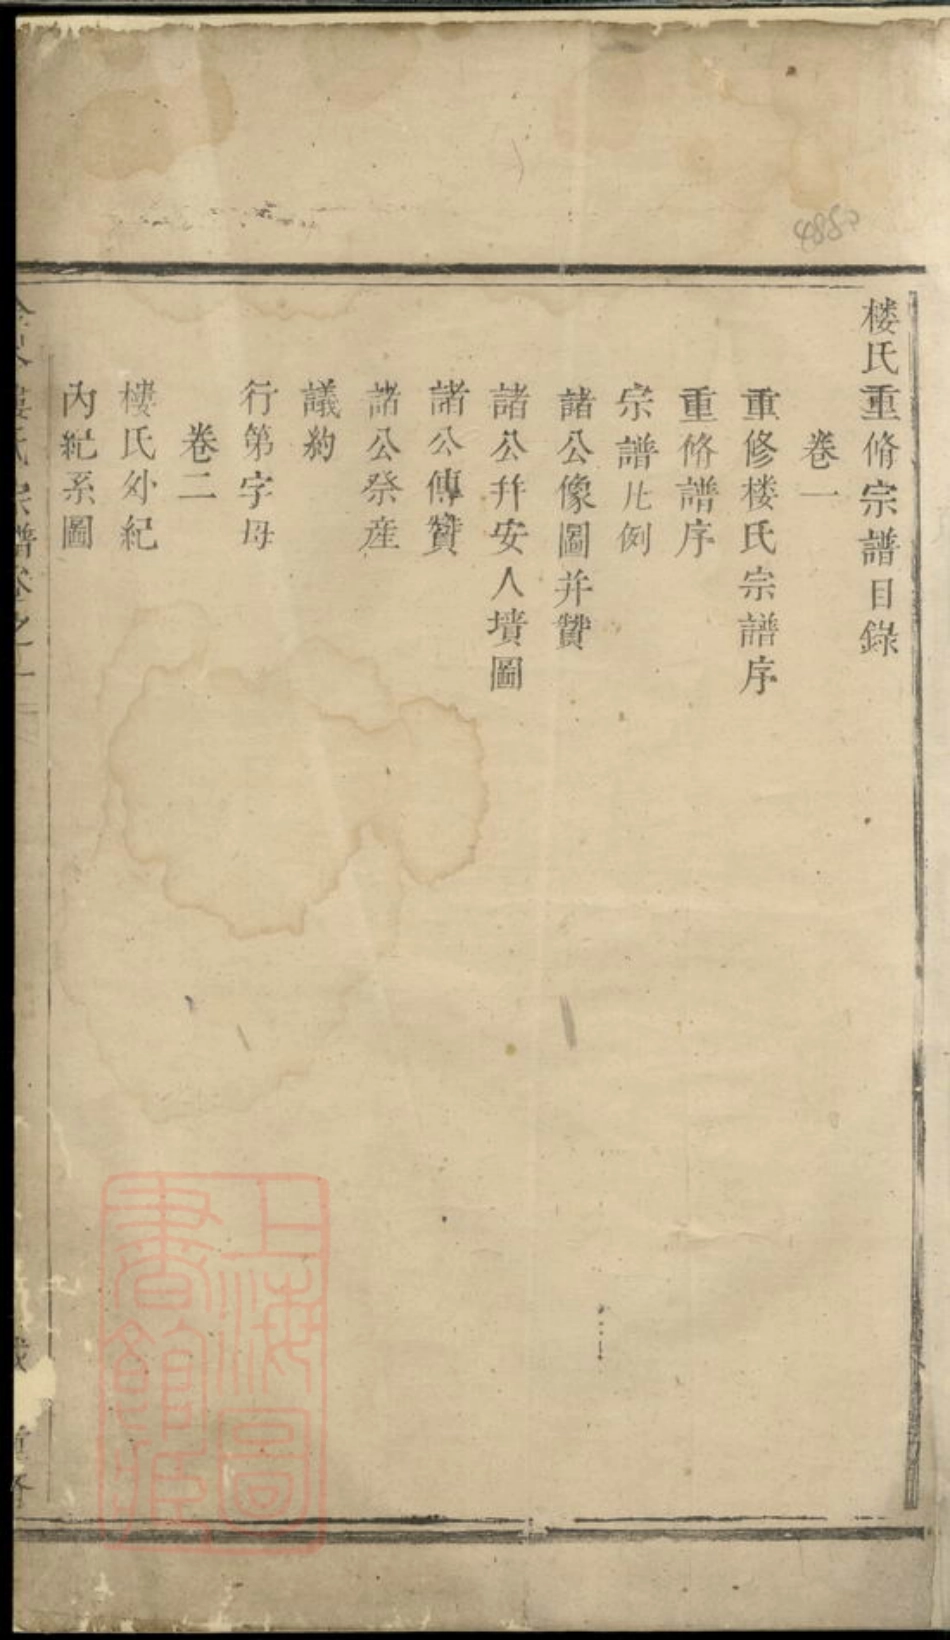 楼氏重脩宗譜目錄
卷一
重修楼氏宗譜序
重脩譜序
宗譜凡例
諸公像圖并贊
諸公并安人墳圖
諸公傳贊
諸公祭産
議約
行第字母
卷二
樓氏外紀
內紀系圖
樓氏宗譜卷之一
重脩
上海圖書館藏